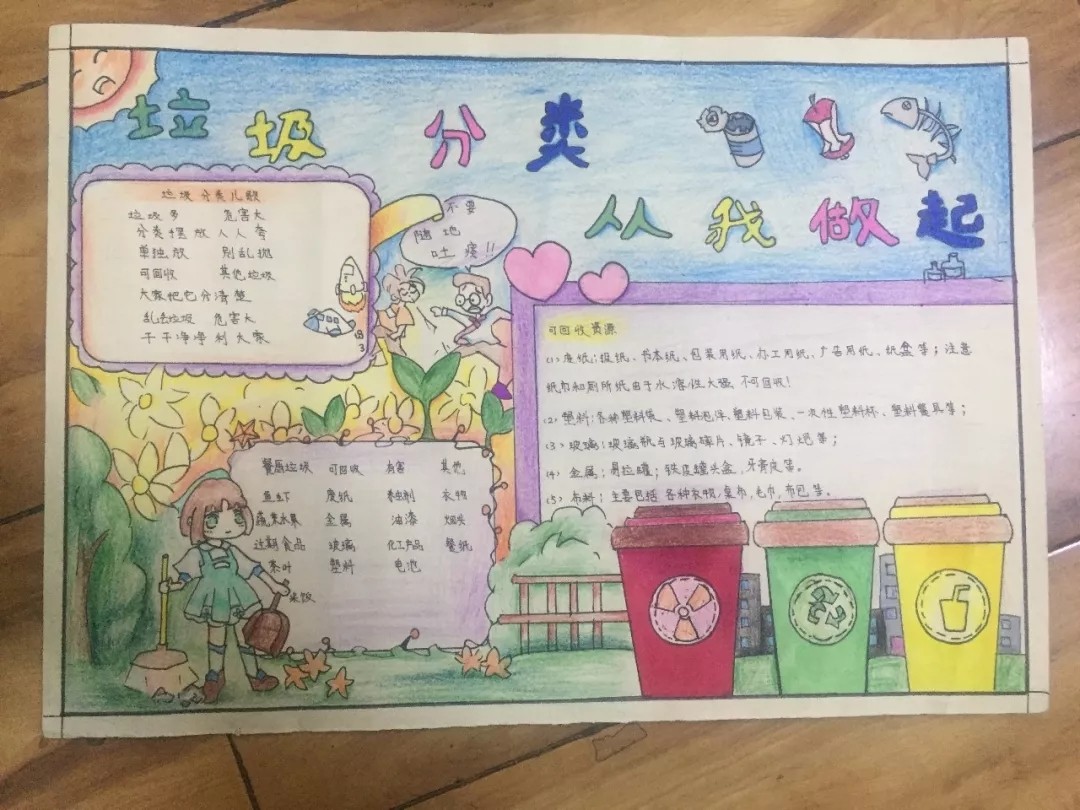 垃圾 分类
从我做起
垃圾分类儿歌
垃圾多 危害大
分类摆放人人夸
单独放 别乱抛
可回收 其他垃圾
大家把它分清楚
乱丢垃圾 危害大
干干净净利大家
不要
随地
吐痰!!
可回收资源
(1)废纸:报纸、书本纸、包装用纸、办公用纸、广告用纸、纸盒等;注意
纸巾和厕所纸由于水溶性太强不可回收!
(2)塑料:各种塑料袋、塑料泡沫、塑料包装、一次性塑料杯、塑料餐具等;
(3)玻璃:玻璃瓶与玻璃碎片、镜子、灯泡等;
(4)金属:易拉罐;铁皮罐头盒,牙膏皮等。
(5)布料;主要包括各种衣物,桌布,毛巾,布包等。
餐厨垃圾 可回收 有害 其他
鱼虾 废纸 衣物
蔬菜水果 金属 油漆 烟头
过期食品 玻璃 化工产品 餐纸
茶叶 塑料 电池
米饭